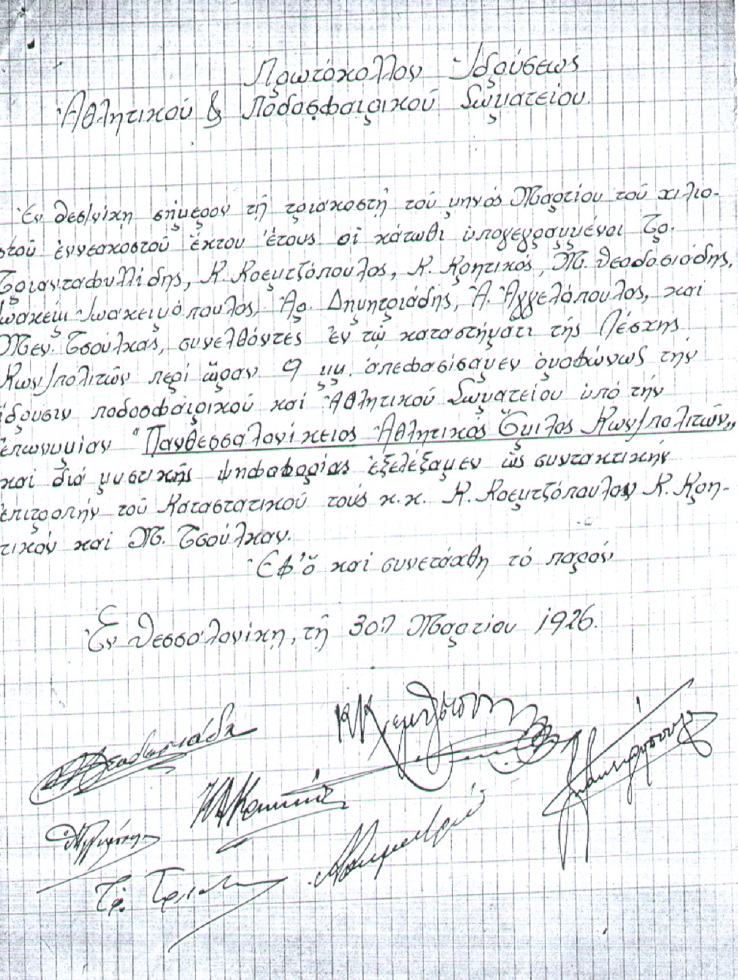 Πρωτόκολλον Ἱδρύσεως
Ἀθλητικοῦ & Ποδοσφαιρικοῦ Σωματείου.
Ἐν Θεσ/νίκῃ σήμερον τῇ τριακοστῇ τοῦ μηνός Μαρτίου τοῦ χιλιο-
στοῦ ἐννεακοστοῦ ἕκτου ἔτους οἱ κάτωθι ὑπογεγραμμένοι Τρ.
Τριανταφυλλίδης, Κ. Κοεμτζόπουλος, Κ. Κρητικός, Μ. Θεοδοσιάδης,
Ἰωακείμ Ἰωακειμόπουλος, Ἀρ. Δημητριάδης, Ἀ. Ἀγγελόπουλος, καί
Μεν. Τσούλκας, συνελθόντες ἐν τῷ καταστήματι τῆς Λέσχης
Κων/πολιτῶν περί ὥραν 9 μμ. ἀπεφασίσαμεν ὁμοφώνως τήν
ἵδρυσιν ποδοσφαιρικοῦ καί Ἀθλητικοῦ Σωματείου ὑπό τήν
ἐπωνυμίαν "Πανθεσσαλονίκειος Ἀθλητικός Ὅμιλος Κων/πολιτῶν„
καί διά μυστικῆς ψηφοφορίας ἐξελέξαμεν ὡς συντακτικήν
ἐπιτροπήν τοῦ Καταστατικοῦ τούς κ.κ. Κ. Κοεμτζόπουλον Κ. Κρη-
τικόν καί Μ. Τσούλκαν.
Ἐφ' ὅ καί συνετάχθη τό παρόν
Ἐν Θεσσαλονίκῃ, τῇ 30ῃ Μαρτίου 1926.
Θεοδοσιάδη
Τρ. Τριαν